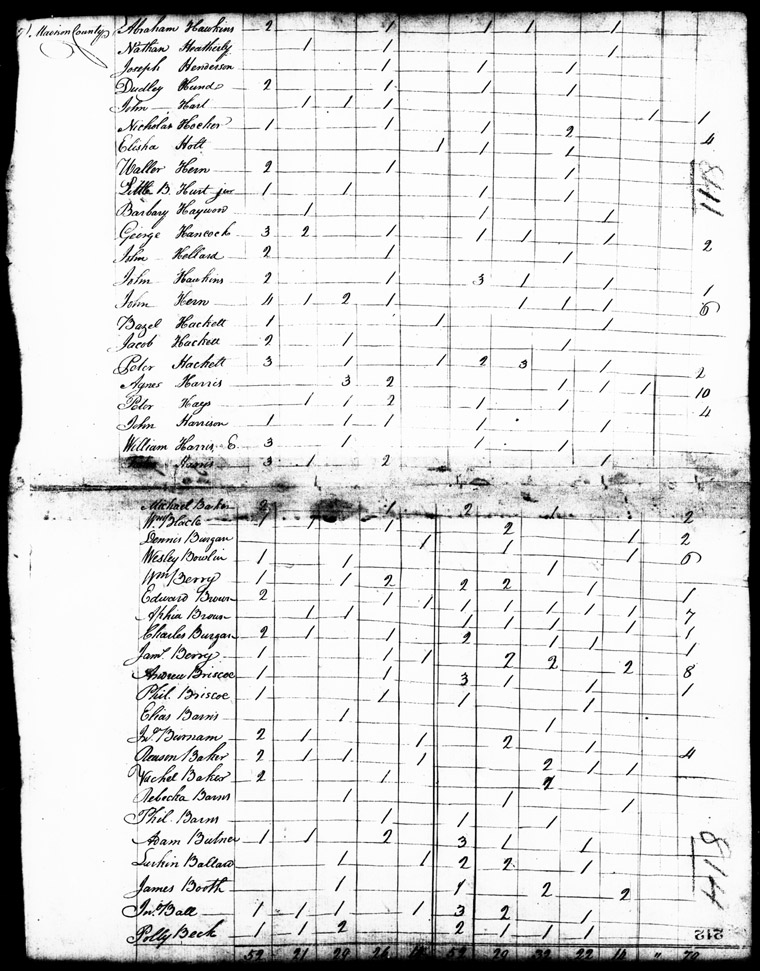 Madison County
Abraham Hawkins 2 1 1 1 1
Nathan Heatherly 1 1 1
Joseph Henderson 1 1 1
Dudley 2 1 1 1
John Hart 1 1 1 1 1
Nicholas Hocker 1 1 1 2 4
Elisha Holt 1 1 1
Waller Hern 2 1 1
Little B. Hurt jur 1 1 1 1
Barbary 1 1 1
George Hancock 3 2 1 1 1 1 2
John Hollard 2 1 1
John Hawkins 2 1 3 1 1 1
John Hern 4 1 2 1 1 1 1 6
Bazel Hackett 1 1 1
Jacob Hackett 2 1 1
Peter Hackett 3 1 1 2 3 1 2
Agnes Harris 3 2 1 1 1 10
Peter Hays 1 1 2 1 1 4
John Harrison 1 1 1 1 1
William Harris E. 3 1 1 1
Harris 3 1 2 1
811
Michael Baker 2 1 2 1 2
Wm. Black 1 1 1 2
Dennis Burgan 1 1 1 2
Wesley Bowlin 1 1 1 1 6
Wm Berry 1 1 2 2 2 1
Edward Brown 2 1 1 1 1 1 1 1 1
Aphia Broun 1 1 1 1 1 1 7
Charles Burgan 2 1 1 2 1 1 1
Jams. Berry 1 1 1 2 2 2 1
Andrew Briscoe 1 1 3 1 8
Phil. Briscoe 1 1 1 1 1
Elias Barns 1 1
Jno. Burnam 2 1 1 2 1
Reuson Baker 2 1 1 1 2 1 1 4
Vachel Baker 2 1 2
Rebecka Barns 1 1 1
Phil. Barns 1 1 1
Adam Butner 1 1 2 3 1 1
Larkin Ballard 1 1 2 2 1
James Booth 1 1 2 2
Jno. Ball 1 1 1 1 3 2 1
Polly Beck 1 1 2 2 1 1 1
814
212